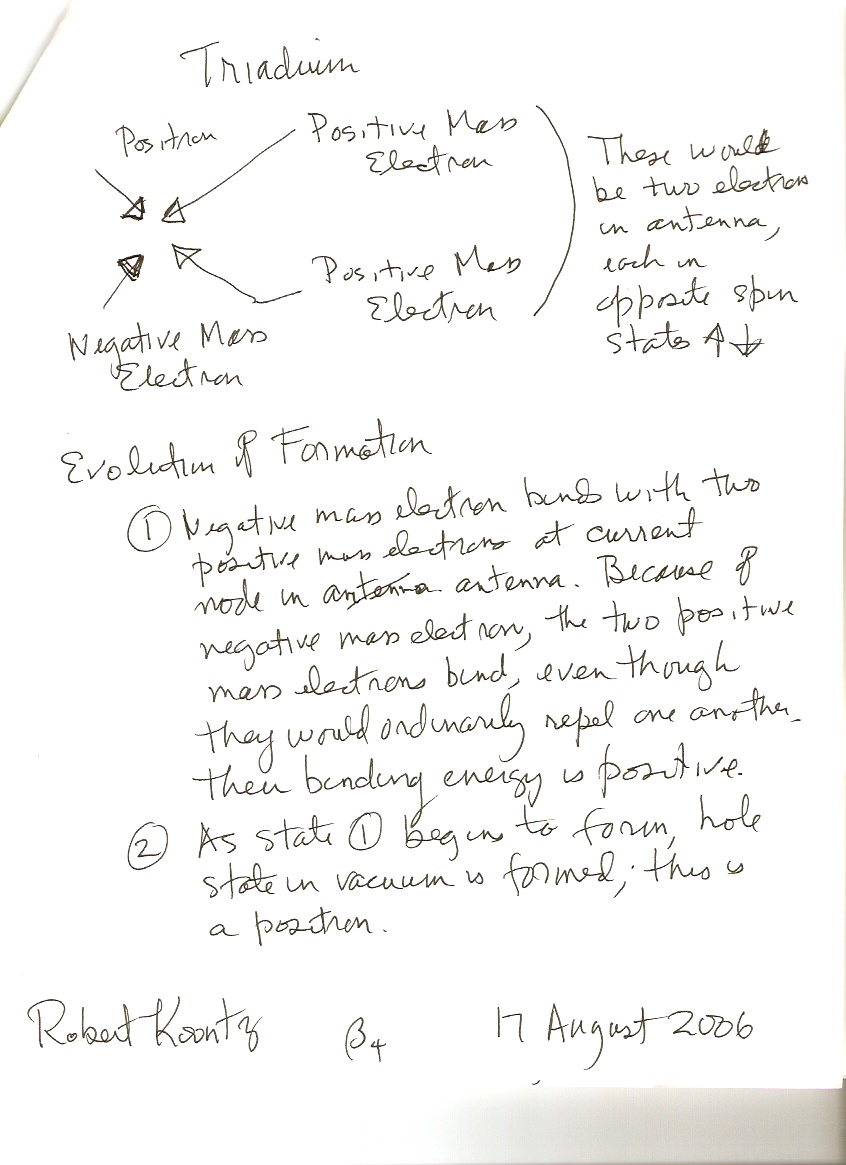 Triadium
Positron
Positive Mass
Electron
Positive Mass
Electron
Negative Mass
Electron
These would
be two electrons
in antenna,
each in
opposite spin
states ↑↓
Evolution of Formation
① Negative mass electron binds with two
positive mass electrons at current
node in antenna antenna. Because of
negative mass electron, the two positive
mass electrons bind, even though
they would ordinarily repel one another.
Their binding energy is positive.
② As state ① begins to form, hole
state in vacuum is formed; this is
a positron.
Robert Koontz β4 17 August 2006